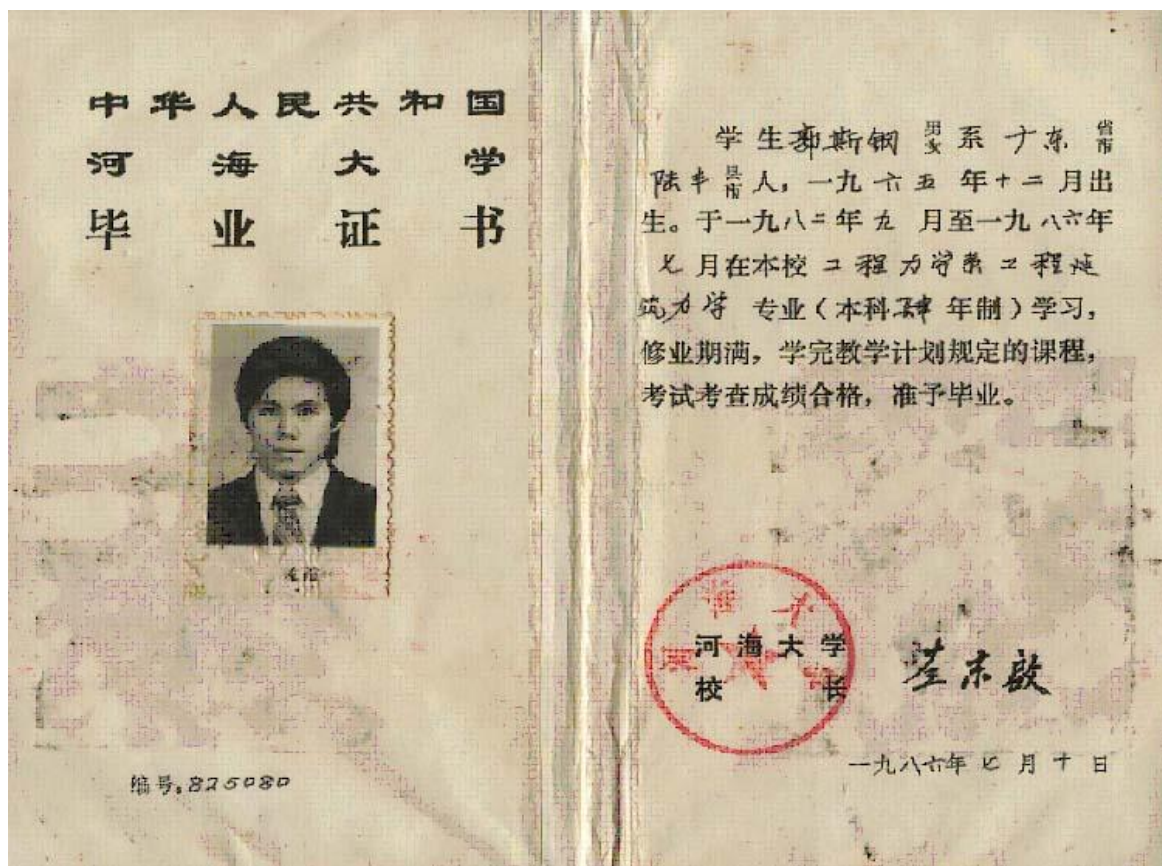 中华人民共和国
河海大学
毕业证书
编号:825080
学生 斯钢 男女 系 广东 省市
陆丰 县市 人,一九六五年十二月出
生。于一九八二年九月至一九八六年
七月在本校 工程力学系工程建
筑力学 专业(本科肆年制)学习,
修业期满,学完教学计划规定的课程,
考试考查成绩合格,准予毕业。
河海大学
校长
一九八六年七月十日